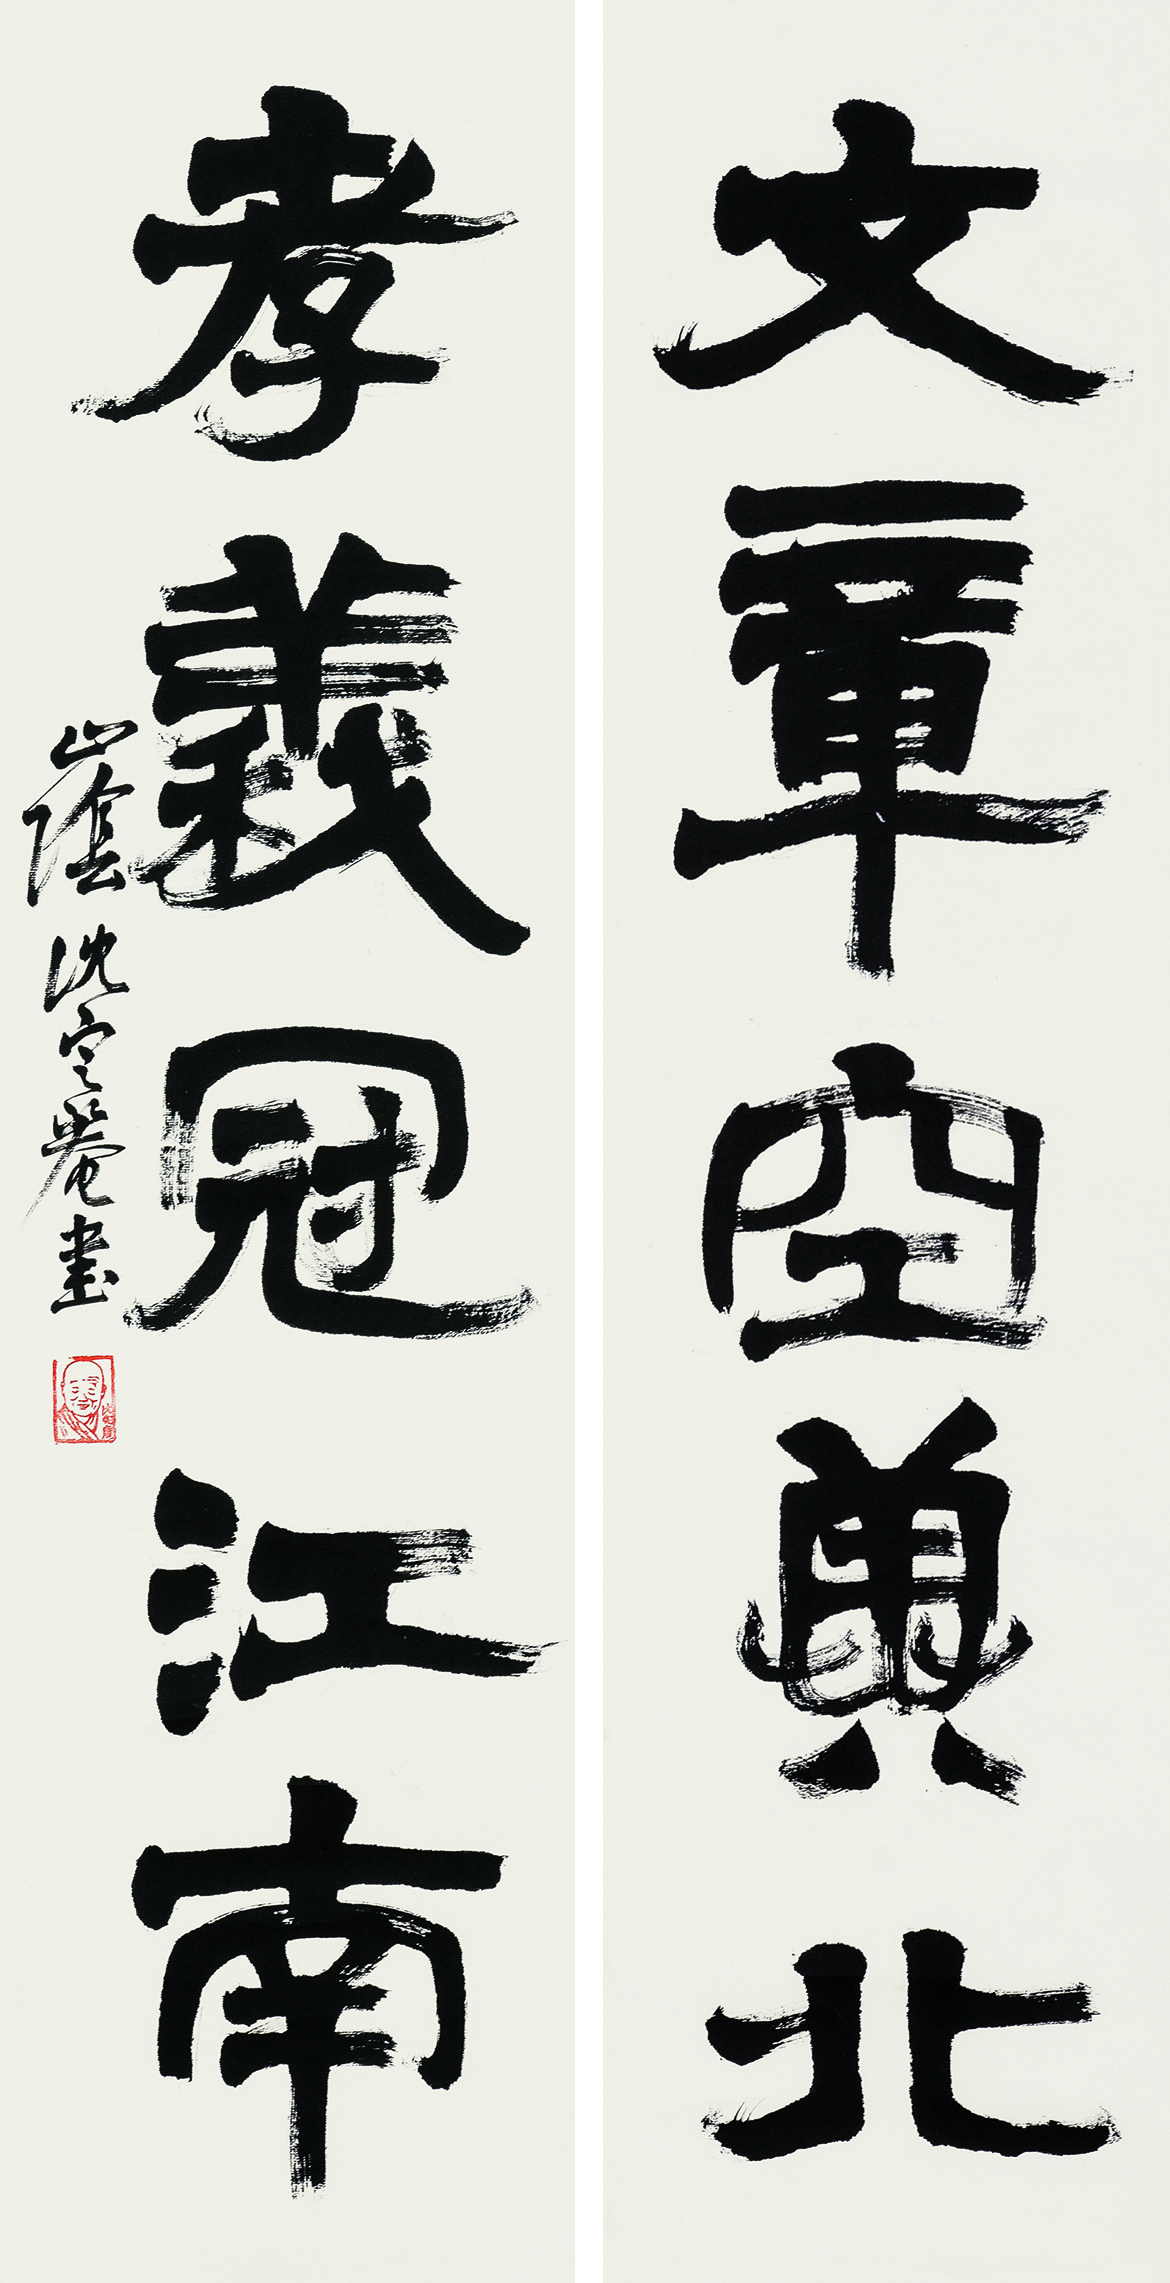 文章空冀北
孝義冠江南
山陰沈定庵書